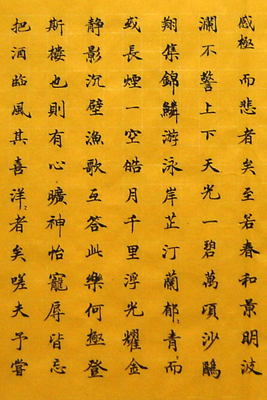 感極而悲者矣至若春和景明波
瀾不驚上下天光一碧萬頃沙鷗
翔集錦鱗游泳岸芷汀蘭郁〻青〻而
或長煙一空皓月千里浮光耀金
靜影沉壁漁歌互答此樂何極登
斯樓也則有心曠神怡寵辱皆忘
把酒臨風其喜洋〻者矣嗟夫予嘗